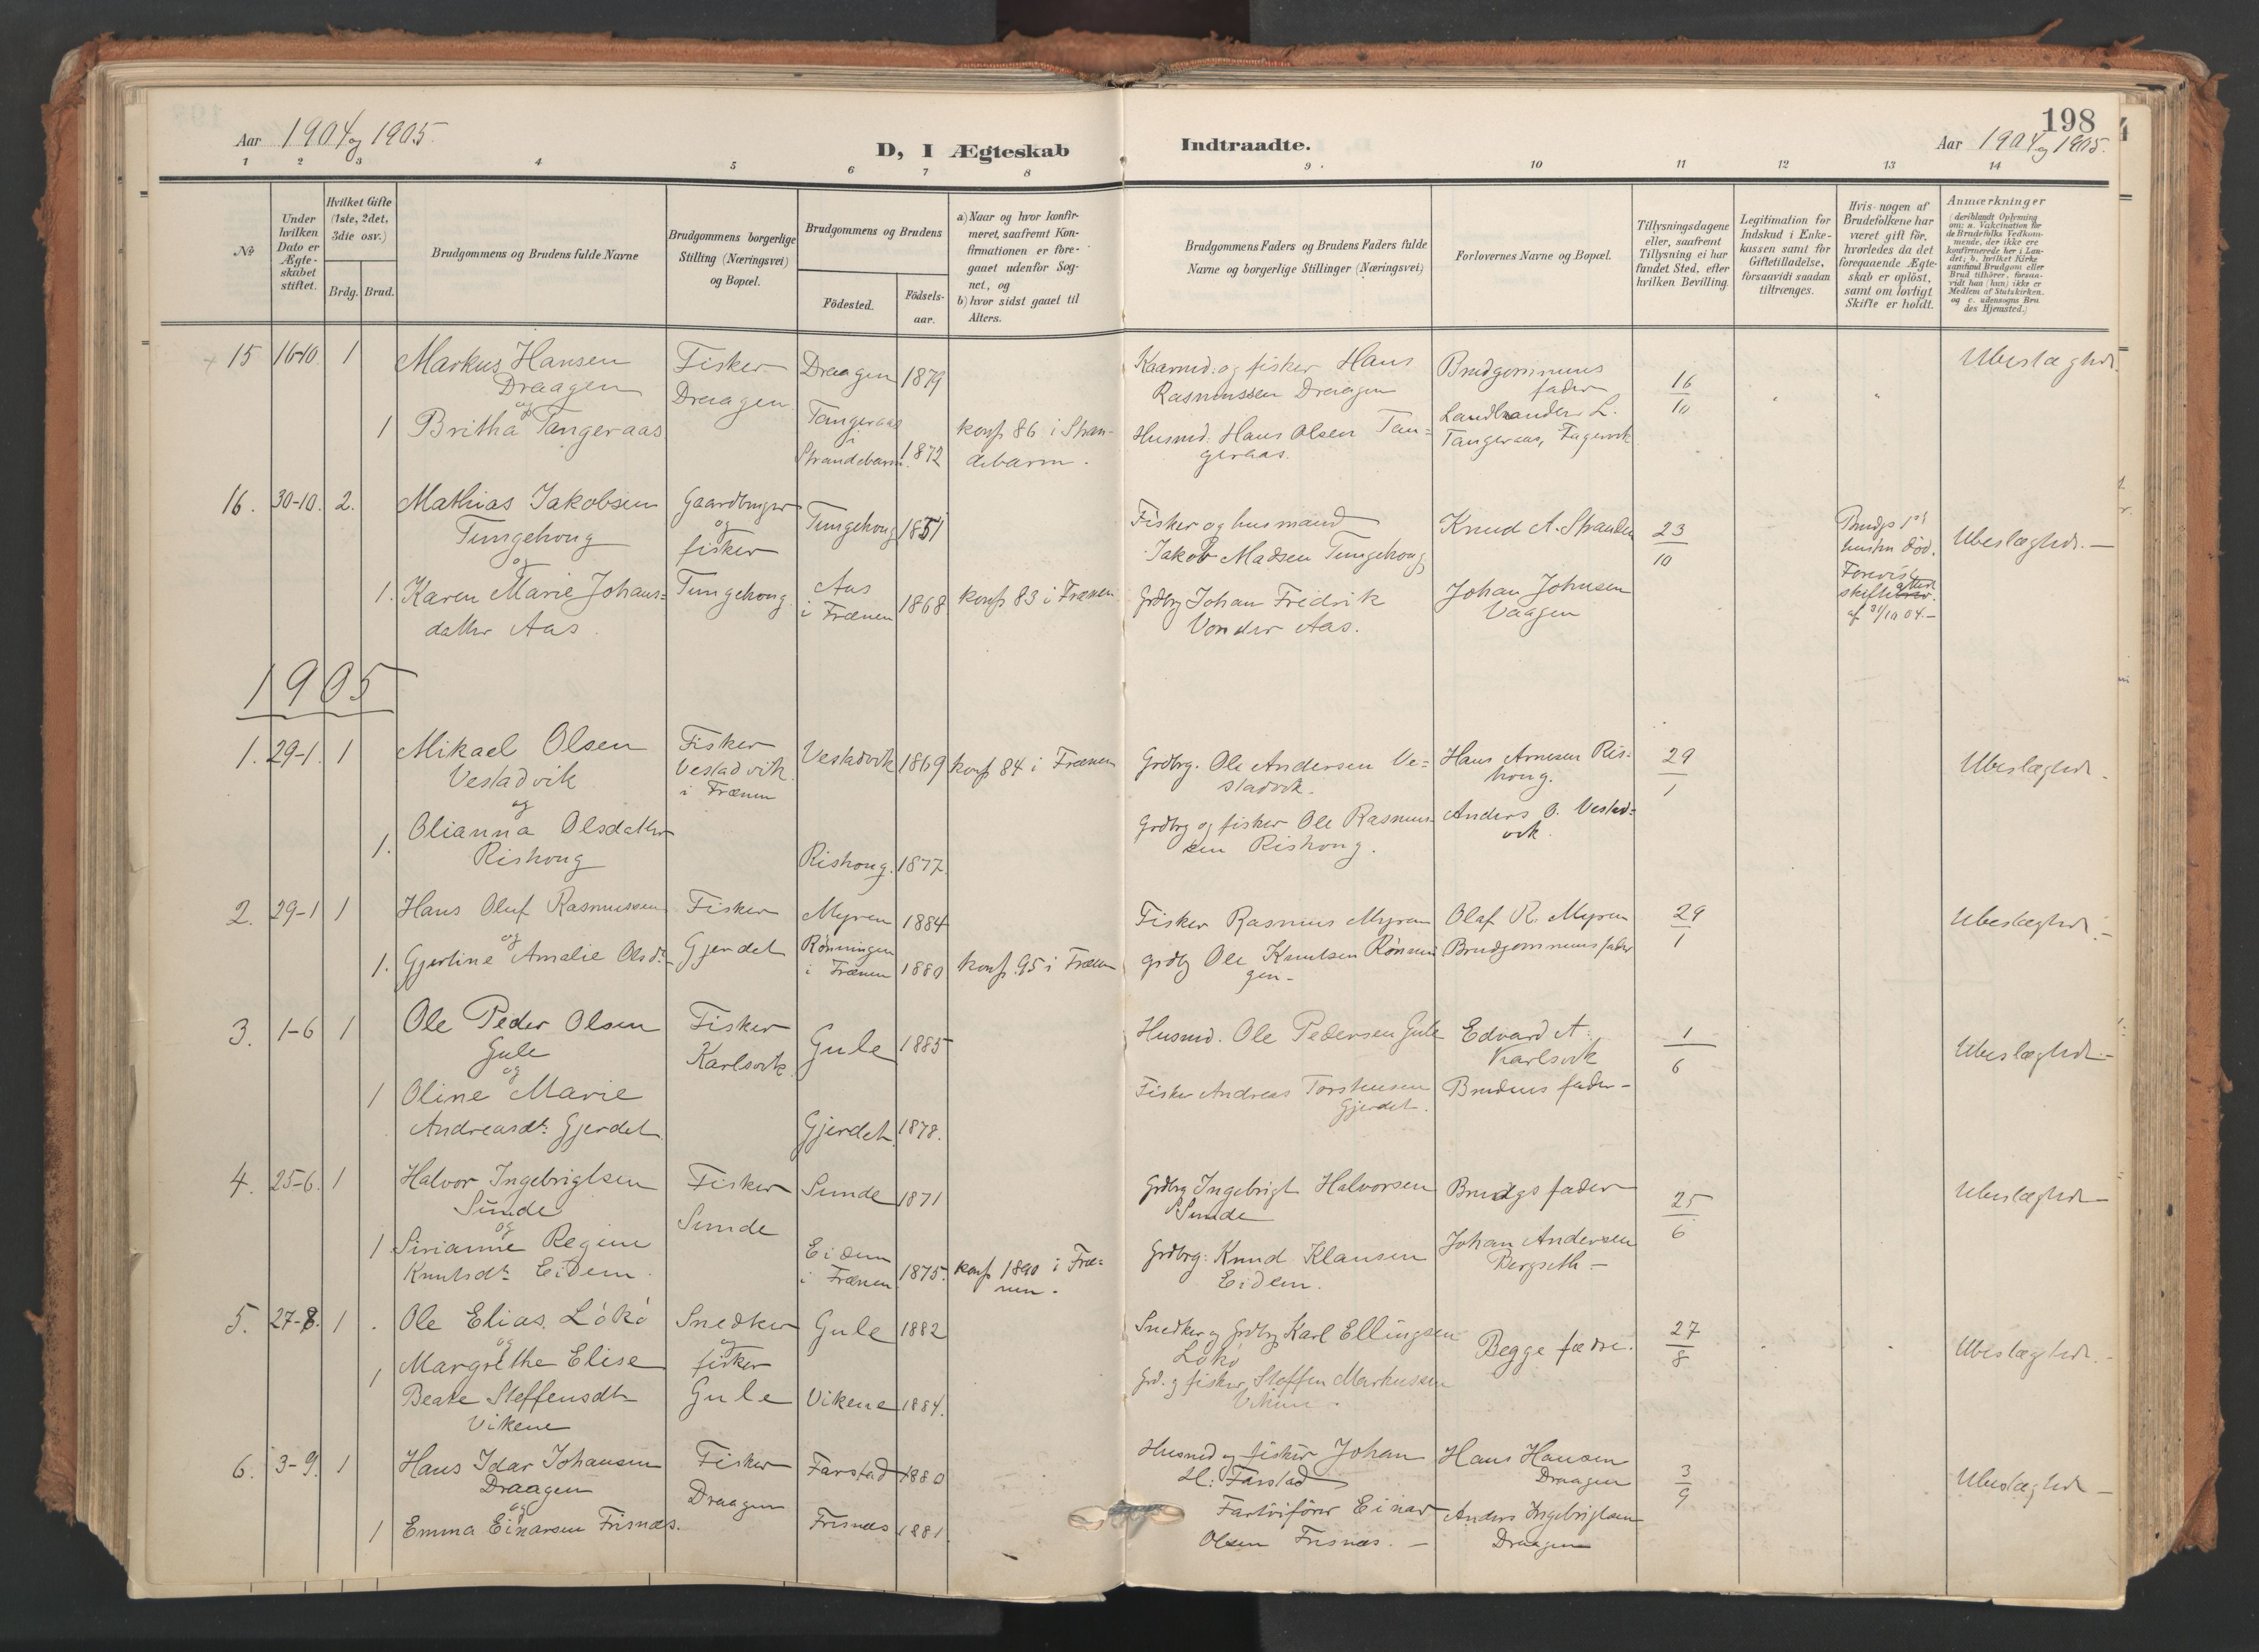 198
Aar 1904 og 1905.
D, I Ægteskab
Indtraadte.
Aar 1904 og 1905.
1 2 3 4 5 6 7 8 9 10 11 12 13 14
№
Under hvilken Dato er Ægteskabet stiftet.
Hvilket Gifte (1ste, 2det, 3die osv.)
Brdg. Brud.
Brudgommens og Brudens fulde Navne
Brudgommens borgerlige Stilling (Næringsvei) og Bopæl.
Brudgommens og Brudens
Födested.
Födsels-aar.
a) Naar og hvor konfir-
meret, saafremt Kon-
firmationen er fore-
gaaet udenfor Sog-
net, og
b) hvor sidst gaaet til
Alters.
Brudgommens Faders og Brudens Faders fulde
Navne og borgerlige Stillinger (Næringsvei)
Forlovernes Navne og Bopæl.
Tillysningsdagene
eller, saafremt
Tillysning ei har
fundet Sted, efter
hvilken Bevilling.
Legitimation for
Indskud i Enke-
kassen samt for
Giftetilladelse,
forsaavidt saadan
tiltrænges.
Hvis nogen af
Brudefolkene har
været gift för,
hvorledes da det
foregaaende Ægte-
skab er oplöst,
samt om lovligt
Skifte er holdt.
Anmærkninger
(deriblandt Oplysning
om: a. Vakcination for
de Brudefolks Vedkom-
mende, der ikke ere
konfirmerede her i Lan-
det; b. hvilket Kirke
samfund Brudgom eller
Brud tilhörer, forsaa-
vidt han (hun) ikke er
Medlem af Statskirken.
og c. udensogns Bru
des Hjemsted.)
15 16-10. 1 Markus Hansen Fisker Draagen 1879 Kaarmd. og fisker Hans Brudgommens 16/10 Ubeslægtede.
Draagen Draagen Rasmussen Draagen fader
og
1 Britha Tangeraas Tangeraas i Strandebarm. 1872 konf 86 i Stran-
debarm.
Husmd. Hans Olsen Tan=
geraas.
Landhandler L.
Tangeraas, Fagervik
16. 30-10. 2. Mathias Jakobsen Gaardbruger Tungehoug 1851 Fisker og husmand Knud A. Stranden 23/10 Ubeslægtede.—
Tungehoug og fisker Jakob Madsen Tungehoug
og
1. Karen Marie Johans= Tungehoug Aas i Frænen 1868 konf 83 i Frænen Grdbrg Johan Fredrik Johan Johnsen
datter Aas. Vonder Aas. Vaagen
Brudgs 1ste
hustru död.
Forevist
skifteattest
af 31/10 04.—
1905
1. 29-1. 1 Mikael Olsen Fisker Vestadvik 1869 konf 84 i Frænen Grdbrg. Ole Andersen Ve= Hans Arnesen Ris- 29/1 Ubeslægtede.
Vestadvik Vestadvik i Frænen stadvik. houg.
og
1. Olianna Olsdatter Rishoug. 1877. Grdbrg og fisker Ole Rasmus- Anders O. Vestad=
Rishoug sen Rishoug. vik.
2. 29-1 1 Hans Oluf Rasmussen Fisker Myren 1884 Fisker Rasmus Myren Olaf R. Myren 29/1 Ubeslægtede.
og
1. Gjertine Amalie Olsdt. Gjerdet Rönningen i Frænen 1880 konf. 95 i Frænen grdbg Ole Knutsen Rönnin Brudgommens fader
gen—
3. 1-6 1 Ole Peder Olsen Fisker Gule 1885 Husmd. Ole Pedersen Gule Edvard A. 1/6 Ubeslægtede.—
Gule Karlsvik Karlsvik
og
1 Oline Marie Fisker Andreas Torstensen Brudens fader—
Andreasdt. Gjerdet Gjerdet. 1878. Gjerdet.
4. 25-6. 1 Halvor Ingebrigtsen Fisker Sunde 1871 Grdbrg Ingebrigt Halvorsen Brudgs fader 25/6 Ubeslægtede—
Sunde Sunde Sunde
og
1 Sirianne Regine Eidem i Frænen 1875. konf 1890 i Fræ=
nen. Grdbrg. Knud Klausen Johan Andersen
Knutsdt. Eidem. Eidem. Bergseth—
5. 27-8. 1 Ole Elias Lökö Snedker Gule 1882 Snedker og Grdbrg Karl Ellingsen Begge fædre. 27/8 Ubeslægtede.
og og fisker Lökö
1 Margrethe Elise
Beate Steffensdt Gule Vikene 1884. Grd. og fisker Steffen Markussen
Vikene Vikene.
6. 3-9. 1 Hans Idar Johansen Fisker Farstad 1880 Husmd og fisker Johan Hans Hansen 3/9 Ubeslægtede—
Draagen Draagen H. Farstad Draagen
og
1 Emma Einarsen Frisnæs. Frisnæs 1881. Fartöiförer Einar Anders Ingebrigtsen
Olsen Frisnæs.— Draagen